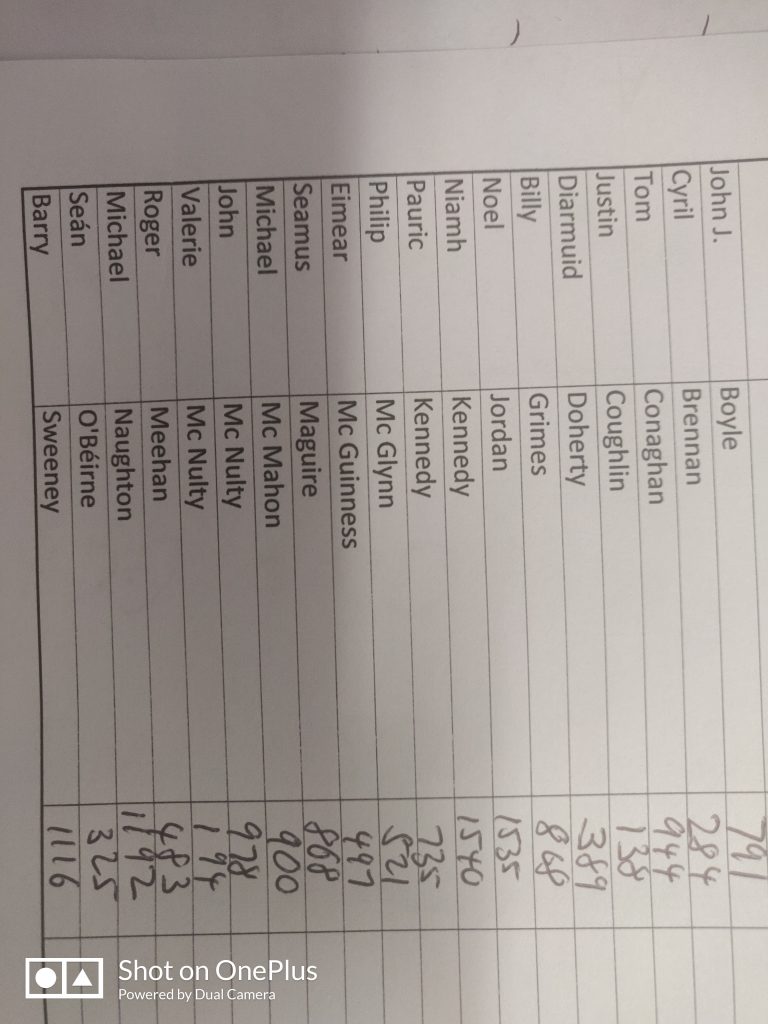 John J. Boyle 791
Cyril Brennan 284
Tom Conaghan 944
Justin Coughlin 138
Diarmuid Doherty 389
Billy Grimes 868
Noel Jordan 1535
Niamh Kennedy 1540
Pauric Kennedy 735
Philip Mc Glynn
Eimear Mc Guinness 497
Seamus Maguire 868
Michael Mc Mahon 900
John Mc Nulty 978
Valerie Mc Nulty 194
Roger Meehan 483
Michael Naughton 1192
Seán O'Béirne 325
Barry Sweeney 1116
Shot on OnePlus
Powered by Dual Camera